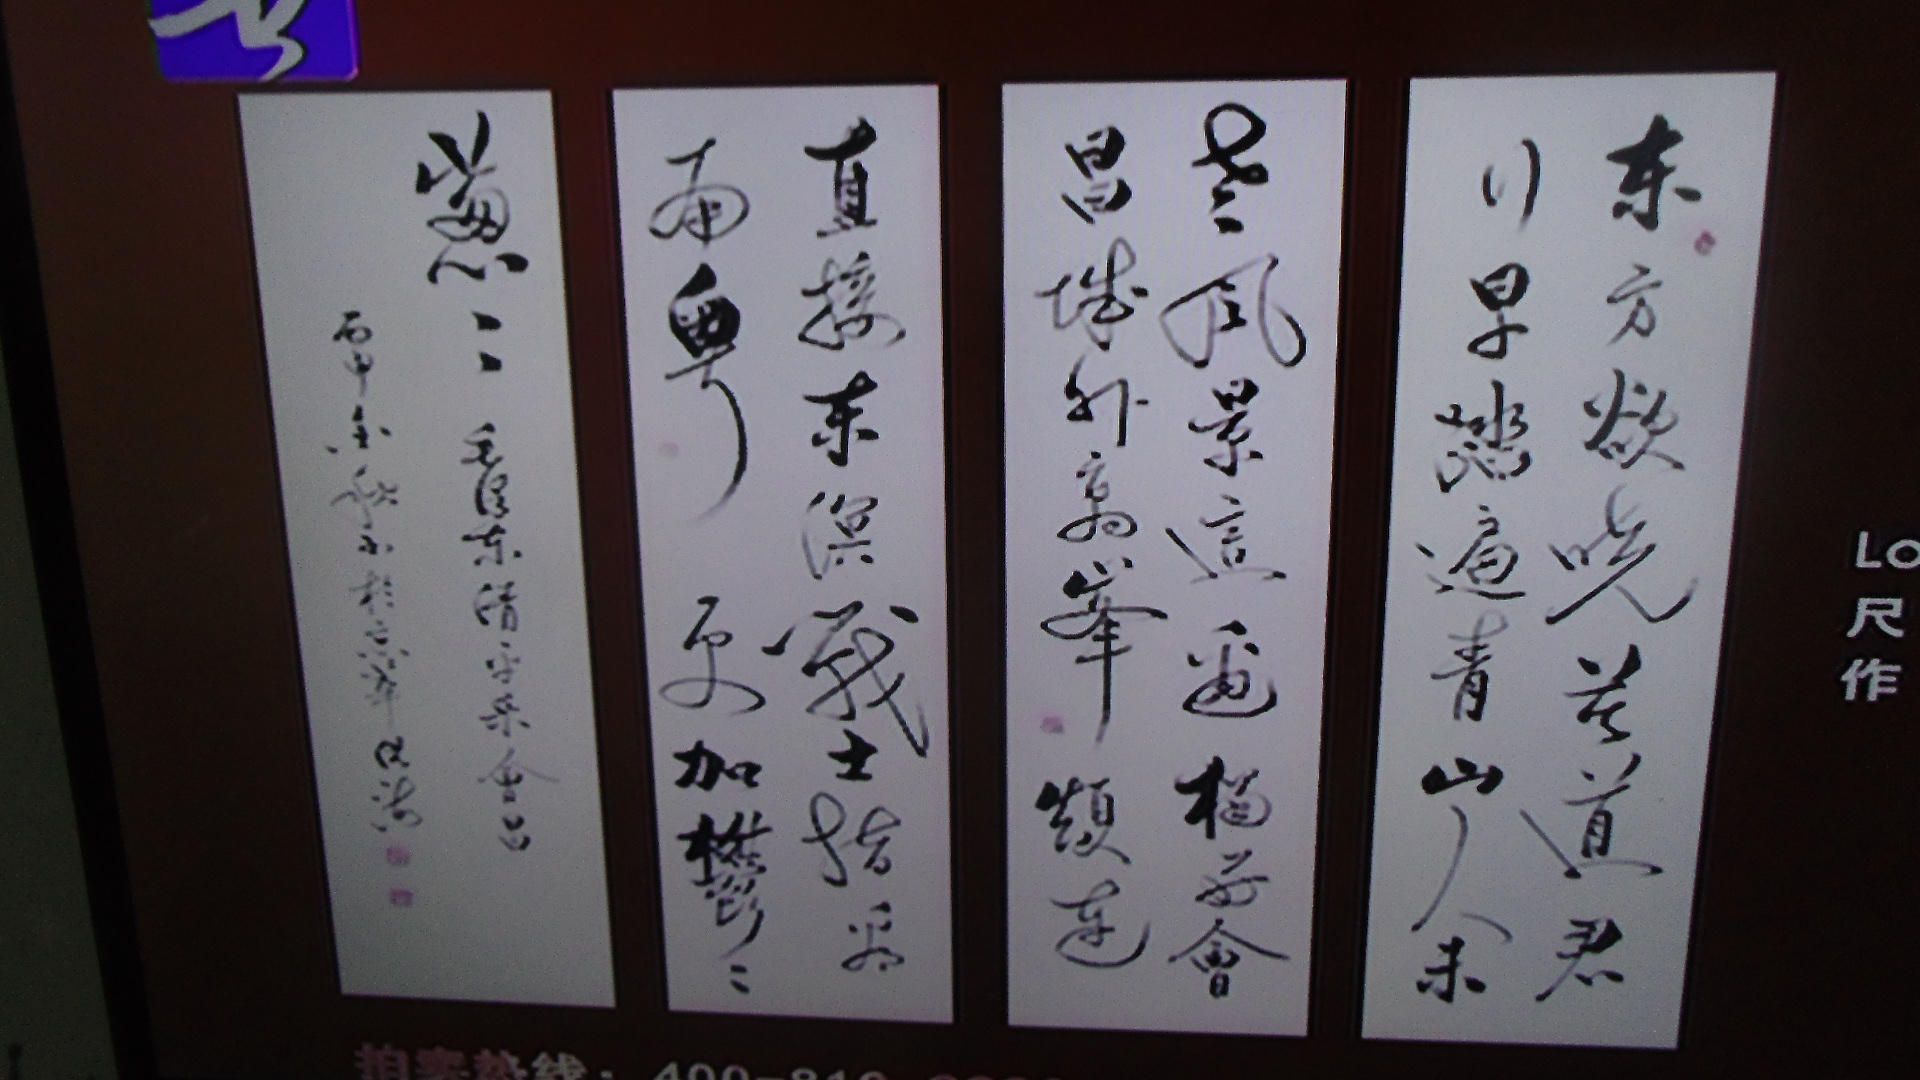 东方欲晓莫道君
行早踏遍青山人未
老风景這边獨好會
昌城外高峰颠连
直接东溟战士指看
南粤更加鬱々
葱々毛泽东清平乐會昌
丙申金秋
LO
尺
作
拍卖热线：400-810